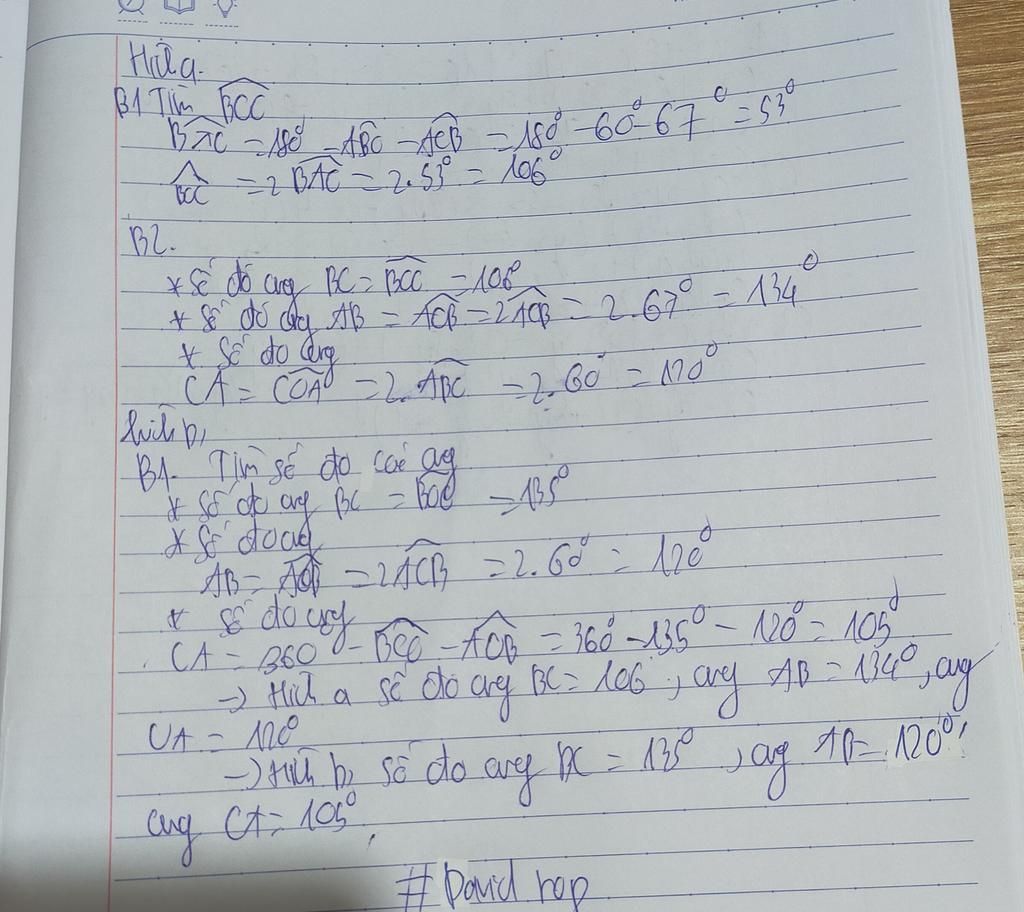 Hình a.
B1 Tìm \widehat{BOC}
\widehat{BAC} = 180⁰ - \widehat{ABC} - \widehat{ACB} = 180⁰ - 60⁰ - 67⁰ = 53⁰
\widehat{BOC} = 2 \widehat{BAC} = 2.53⁰ = 106⁰
B2.
* Số đo cung BC = \widehat{BOC} = 106⁰
* Số đo cung AB = \widehat{AOB} = 2\widehat{ACB} = 2.67⁰ = 134⁰
* Số đo cung
CA = \widehat{COA} = 2.\widehat{ABC} = 2.60⁰ = 120⁰
hình b,
B1. Tìm số đo các cung
* Số đo cung BC = \widehat{BOC} = 135⁰
* Số đo cung
AB = \widehat{AOB} = 2\widehat{ACB} = 2.60⁰ = 120⁰
* số đo cung
CA = 360⁰ - \widehat{BOC} - \widehat{AOB} = 360⁰ - 135⁰ - 120⁰ = 105⁰
→ Hình a số đo cung BC = 106⁰, cung AB = 134⁰, cung
CA = 120⁰
→ Hình b, số đo cung BC = 135⁰, cung AB = 120⁰,
cung CA = 105⁰.
# David rop